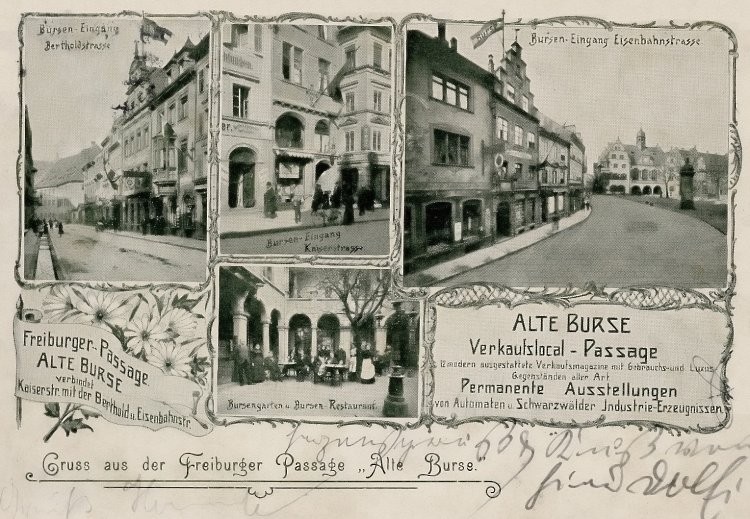 Bursen-Eingang
Bertholdstrasse
Bursen-Eingang
Kaiserstrasse
Bursen-Eingang Eisenbahnstrasse
Bursengarten u. Bursen-Restaurant
Freiburger-Passage
ALTE BURSE
verbindet
Kaiserstr. mit der Berthold u. Eisenbahnstr.
ALTE BURSE
Verkaufslocal-Passage
12 modern ausgestattete Verkaufsmagazine mit Gebrauchs- und Luxus
Gegenständen aller Art
Permanente Ausstellungen
von Automaten u. Schwarzwälder Industrie-Erzeugnissen
Gruss aus der Freiburger Passage „Alte Burse."